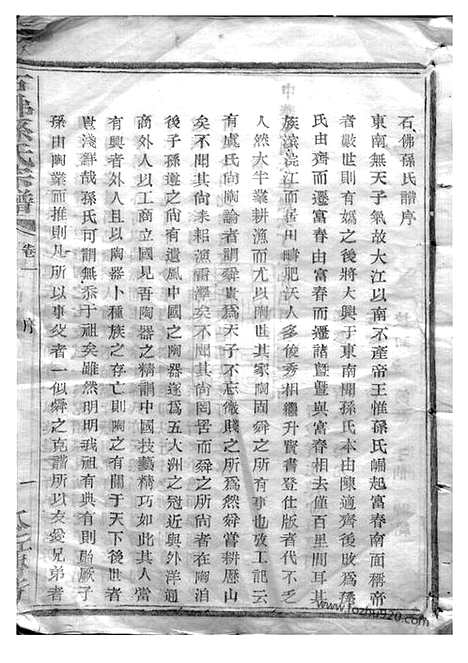 石佛孫氏譜序
東南無天子氣故大江以南不產帝王惟孫氏崛起富春南面稱帝
者數世有嬀之後將大興于東南聞孫氏本由陳適齊後敗為孫
氏由齊而遷富春由富春而遷諸暨暨與富春去僅百里間耳其
族濱浣江而居川疇肥沃人多俊秀相繼升賢書登仕版者代不
人然大半業耕漁而尤以世其家陶固舜之所有事也攷工記云
有虞氏尚陶論者謂舜貴為天子不忘微賤之所為然舜耕厯山
矣不聞有尚耒耜漁雷澤矣不聞有尚罔罟而舜之所尚者在陶洎
後子孫遵之尚有遺風中國之陶器遂為五大洲之冠近與外洋通
商外人以工商立國見吾陶器之精謂中國技藝精巧如此其人當
有興者外人且以陶器卜種族之存亡則陶之有關于天下後世
豈淺鮮哉孫氏可謂無忝于祖矣雖然明明我祖有典有則貽厥子
孫由陶業而推則凡所以事父者一似舜之克諧所以友愛兄弟者
石佛孫氏宗譜
卷一
一
www.jiazhupu920.com